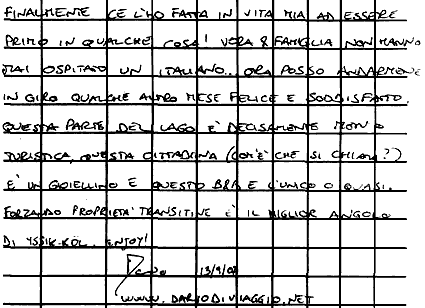 FINALMENTE CE L'HO FATTA IN VITA MIA AD ESSERE
PRIMO IN QUALCHE COSA! VERA & FAMIGLIA NON HANNO
MAI OSPITATO UN ITALIANO.. ORA POSSO ANDARMENE
IN GIRO QUALCHE ALTRO MESE FELICE E SODDISFATTO.
QUESTA PARTE DEL LAGO E' DECISAMENTE MENO
TURISTICA, QUESTA CITTADINA (COM'E' CHE SI CHIAMA?)
E' UN GOIELLINO E QUESTO B&B E' L'UNICO O QUASI.
FORZANDO PROPRIETA' TRANSITIVE E' IL MIGLIOR ANGOLO
DI YSSIK-KÖL. ENJOY!
13/9/08
WWW.DARIODIVIAGGIO.NET